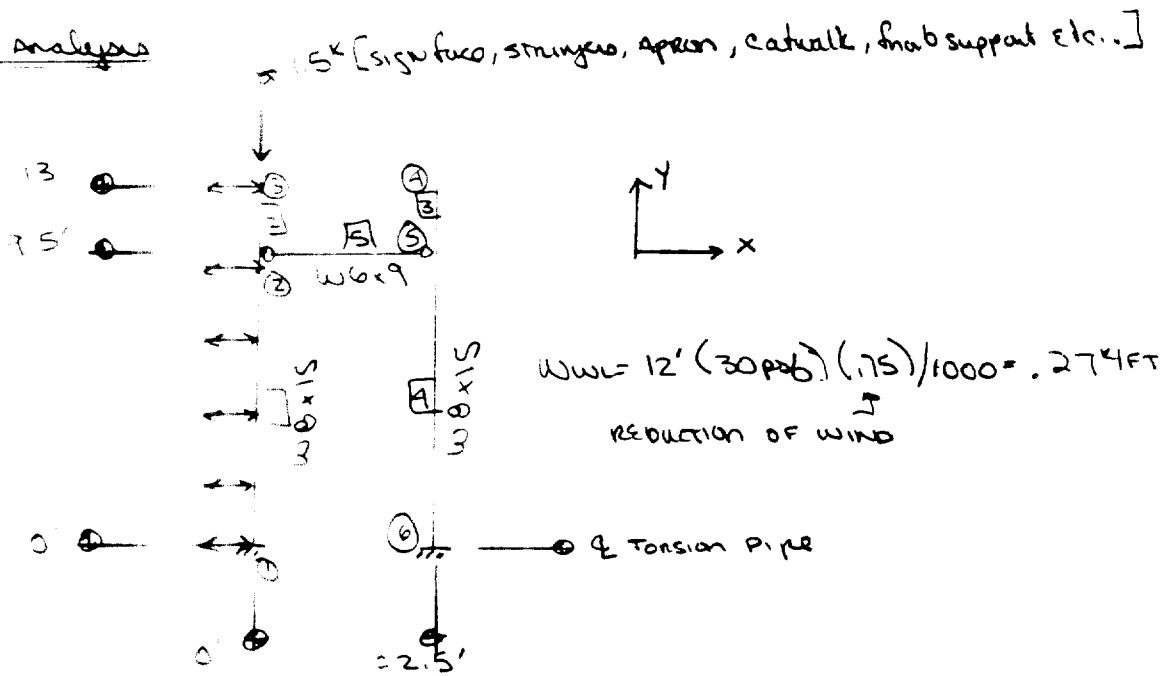 Analysis
5ᴷ [sign face, stringers, Apron, catwalk, support etc..]
13
③
④
3
5'
5
⑤
W6x9
②
Y
X
W8x15
4
W8x15
WWL= 12' (30psf) (.75)/1000 = .27 ᴷ/FT
REDUCTION OF WIND
0
⑥
℄ Torsion Pipe
0'
=2.5'